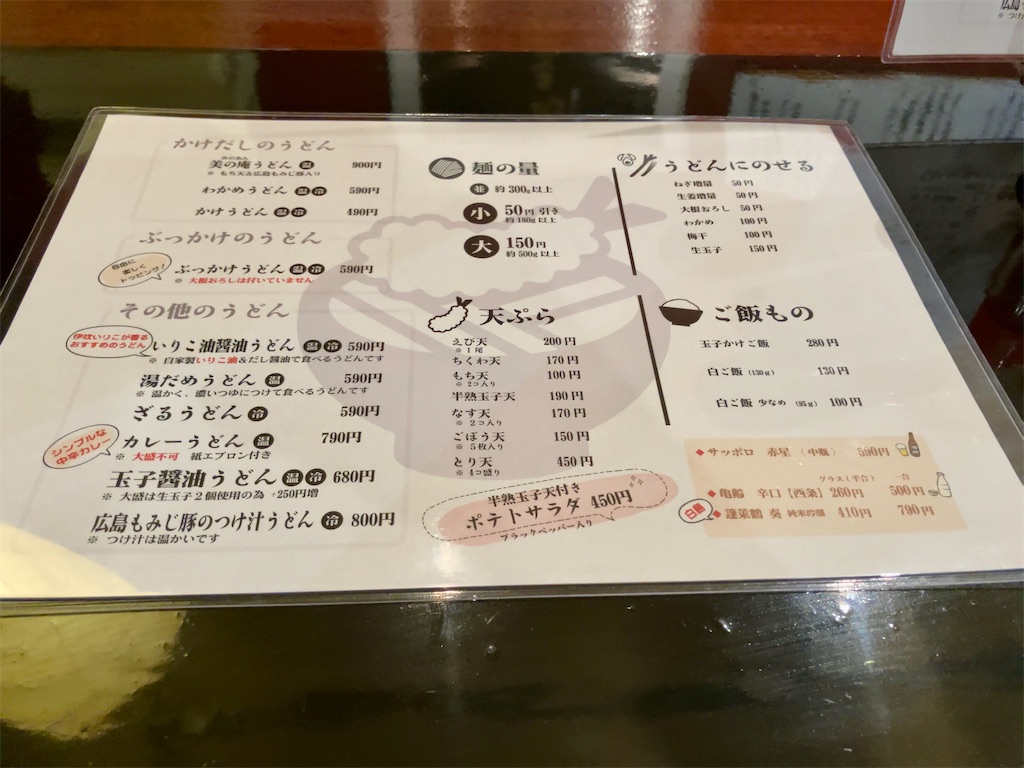 かけだしのうどん
みのあん
美の庵うどん 温 900円
※ もち天&広島もみじ豚入り
わかめうどん 温 冷 590円
かけうどん 温 冷 490円
ぶっかけのうどん
自由に
楽しく
トッピング！
ぶっかけうどん 温 冷 590円
※ 大根おろしは付いていません
その他のうどん
伊吹いりこが香る
おすすめのうどん
いりこ油醤油うどん 温 冷 590円
※ 自家製いりこ油&だし醤油で食べるうどんです
湯だめうどん 温 590円
※ 温かく、濃いつゆにつけて食べるうどんです
ざるうどん 冷 590円
シンプルな
中辛カレー
カレーうどん 温 790円
※ 大盛不可 紙エプロン付き
玉子醤油うどん 温 冷 680円
※ 大盛は生玉子２個使用の為 +250円増
広島もみじ豚のつけ汁うどん 冷 800円
※ つけ汁は温かいです
麺の量
並 約300g以上
小 50円引き
約180g以上
大 150円
約500g以上
天ぷら
えび天 200円
※１尾
ちくわ天 170円
もち天 100円
※２コ入り
半熟玉子天 190円
なす天 170円
※２コ入り
ごぼう天 150円
※５枚入り
とり天 450円
※４コ盛り
半熟玉子天付き
ポテトサラダ 450円
ブラックペッパー入り
うどんにのせる
ねぎ増量 50円
生姜増量 50円
大根おろし 50円
わかめ 100円
梅干 100円
生玉子 150円
ご飯もの
玉子かけご飯 280円
白ご飯（130g） 130円
白ご飯 少なめ（95g） 100円
◆サッポロ 赤星 （中瓶） 590円
グラス（半合） 一合
◆亀齢 辛口【西条】 260円 500円
◆蓬莱鶴 奏 純米吟醸 410円 790円
広島
※ つけ